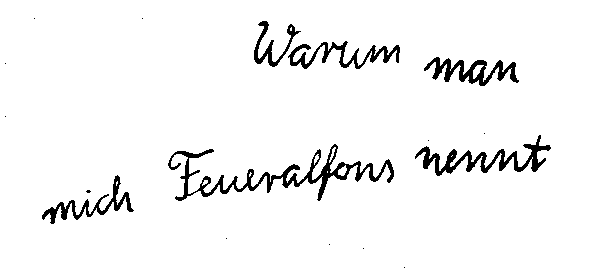 Warum man
mich Feueralfons nennt